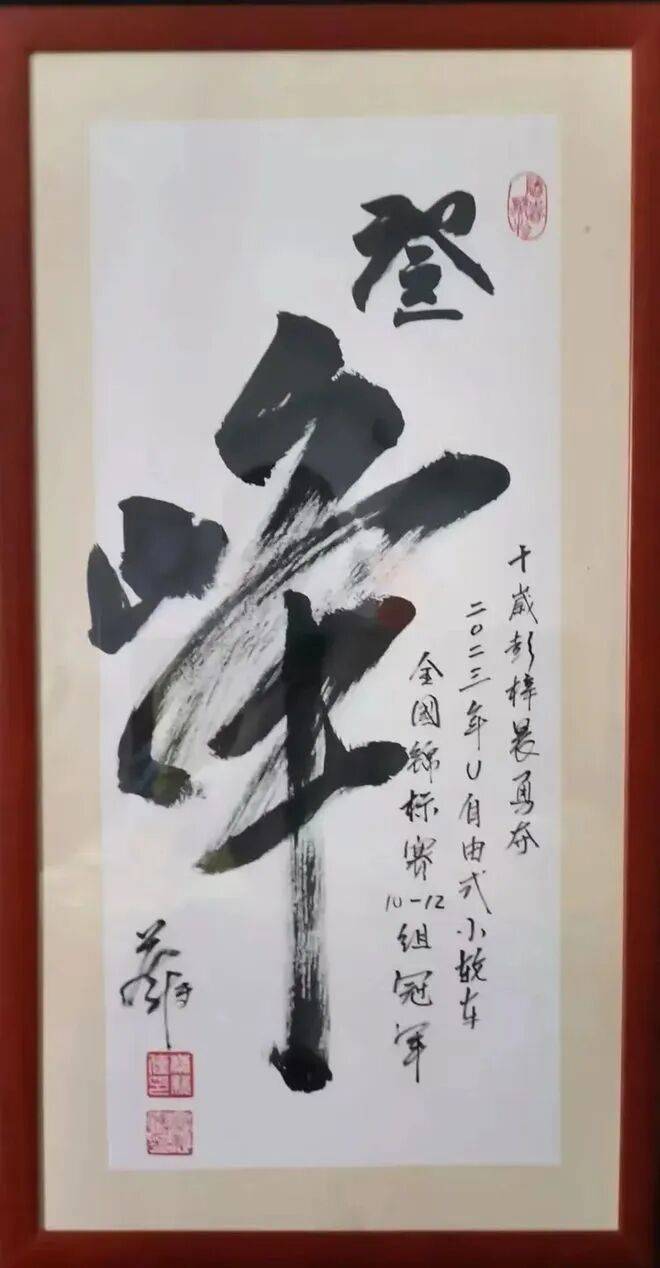 登峰
十歲彭梓晨勇夺
二〇二三年U自由式小轮车
全國錦标赛10-12组冠军